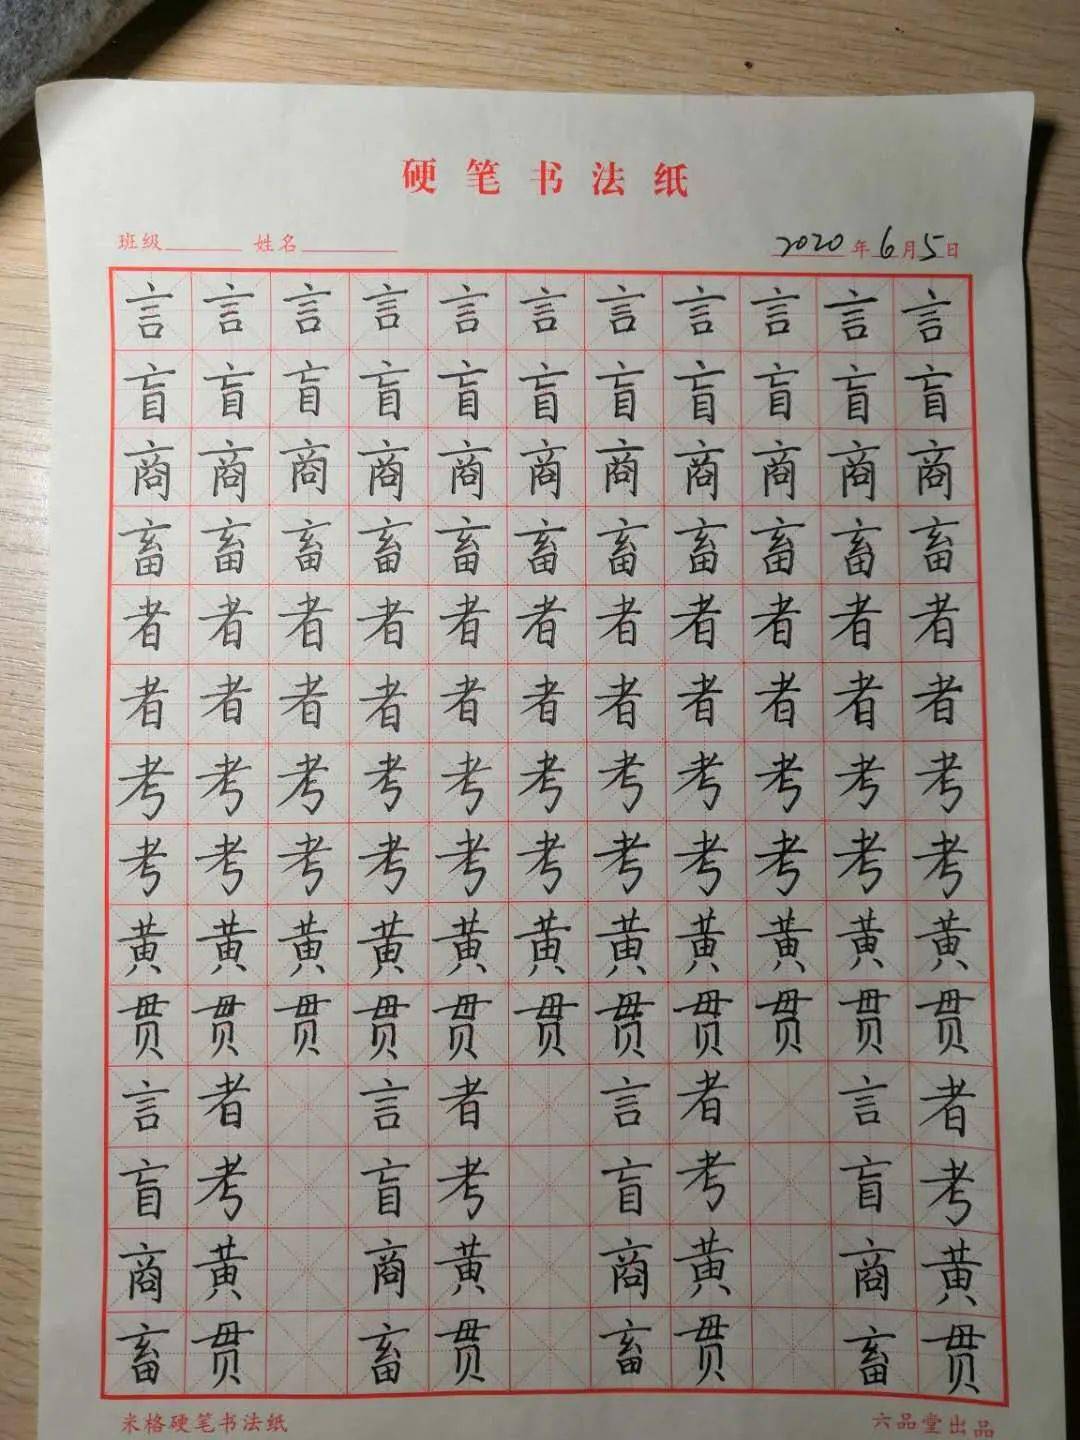 硬笔书法纸
班级 姓名 2020年6月5日
言言言言言言言言言言言
盲盲盲盲盲盲盲盲盲盲盲
商商商商商商商商商商商
畜畜畜畜畜畜畜畜畜畜畜
者者者者者者者者者者者
者者者者者者者者者者者
考考考考考考考考考考考
考考考考考考考考考考考
黄黄黄黄黄黄黄黄黄黄黄
贯贯贯贯贯贯贯贯贯贯贯
言者 言者 言者 言者
盲考 盲考 盲考 盲考
商黄 商黄 商黄 商黄
畜贯 畜贯 畜贯 畜贯
米格硬笔书法纸 六品堂出品